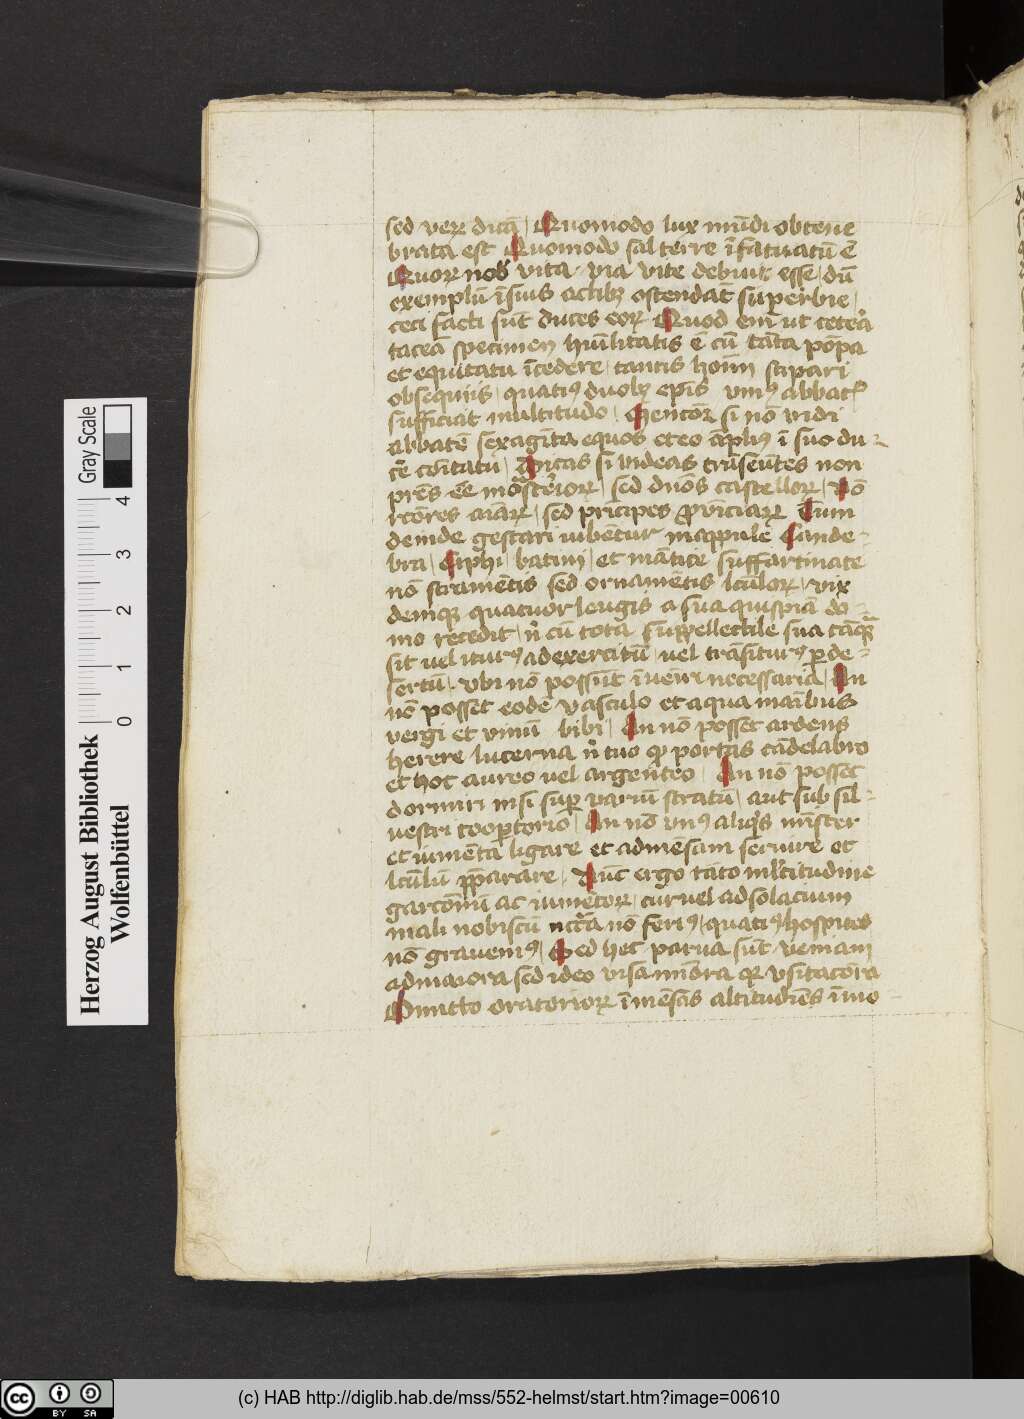 sed verꝝ dicā Quomodo lux mūdi obtene
brata est Quomodo sal terre īfatuatū ē
Quoꝝ nob̄ vita via vite debuit esse dū
exemplū ī suis actibꝫ ostendāt superbie
ceci facti sūt duces eoꝝ Quod em̄ ut cetera
taceā specimen humilitatis ē cū tāta pōpa
et equitatu īcedere tantis hoīm stipari
obsequijs quatiꝰ duobꝫ epīs vniꝰ abbatꝭ
sufficiat multitudo Mencior si nō vidi
abbatē sexagīta equos et eo āpliꝰ ī suo du
cē comitatu Dicas si videas trāseūtes non
prēs eē monasterioꝝ sed dnōs castelloꝝ nō
rcōres aīaꝝ sed principes ꝓvīnciaꝝ Tum
deinde gestari iubētur mappule Cande
bra Ciphi batini et mātice suffartinate
nō stramētis sed ornamētis lctuloꝝ vix
demqꝫ quatuor leugis a sua quispiā do
mo recedit nͥ cū tota suppellectile sua tāqꝫ
sit vel ituꝰ ad exercitū vel trāsituꝰ ꝑ de
sertū vbi nō possūt īvenīr necessaria An
nō posset eodē vasculo et aqua manibus
vergi et vinū bibi An nō posset ardens
herere lucerna nͥ tuo qꝫ portas cādelabro
et hoc aureo vel argenteo An nō posset
dormiri nisi sup variū stratū aut sub sil
vestri cooꝑtorio An nō vnꝰ aliqͥs mīster
et iumēta ligare et ad mēsam servire et
lctulū p̄parare Aut ergo tāto mltitudine
garconū ac iumētoꝝ cur vel ad solacium
mali nobiscū nccā nō feriꝰ quatiꝰ hospites
nō graveniꝰ Sed hec parva sūt veniam
ad maiora sed ideo visa minora qꝛ vsitatiora
Omitto oratorioꝝ īmēsas altitudīes īmo
Herzog August Bibliothek
Wolfenbüttel
Gray Scale
0 1 2 3 4
(c) HAB http://diglib.hab.de/mss/552-helmst/start.htm?image=00610
cc BY SA